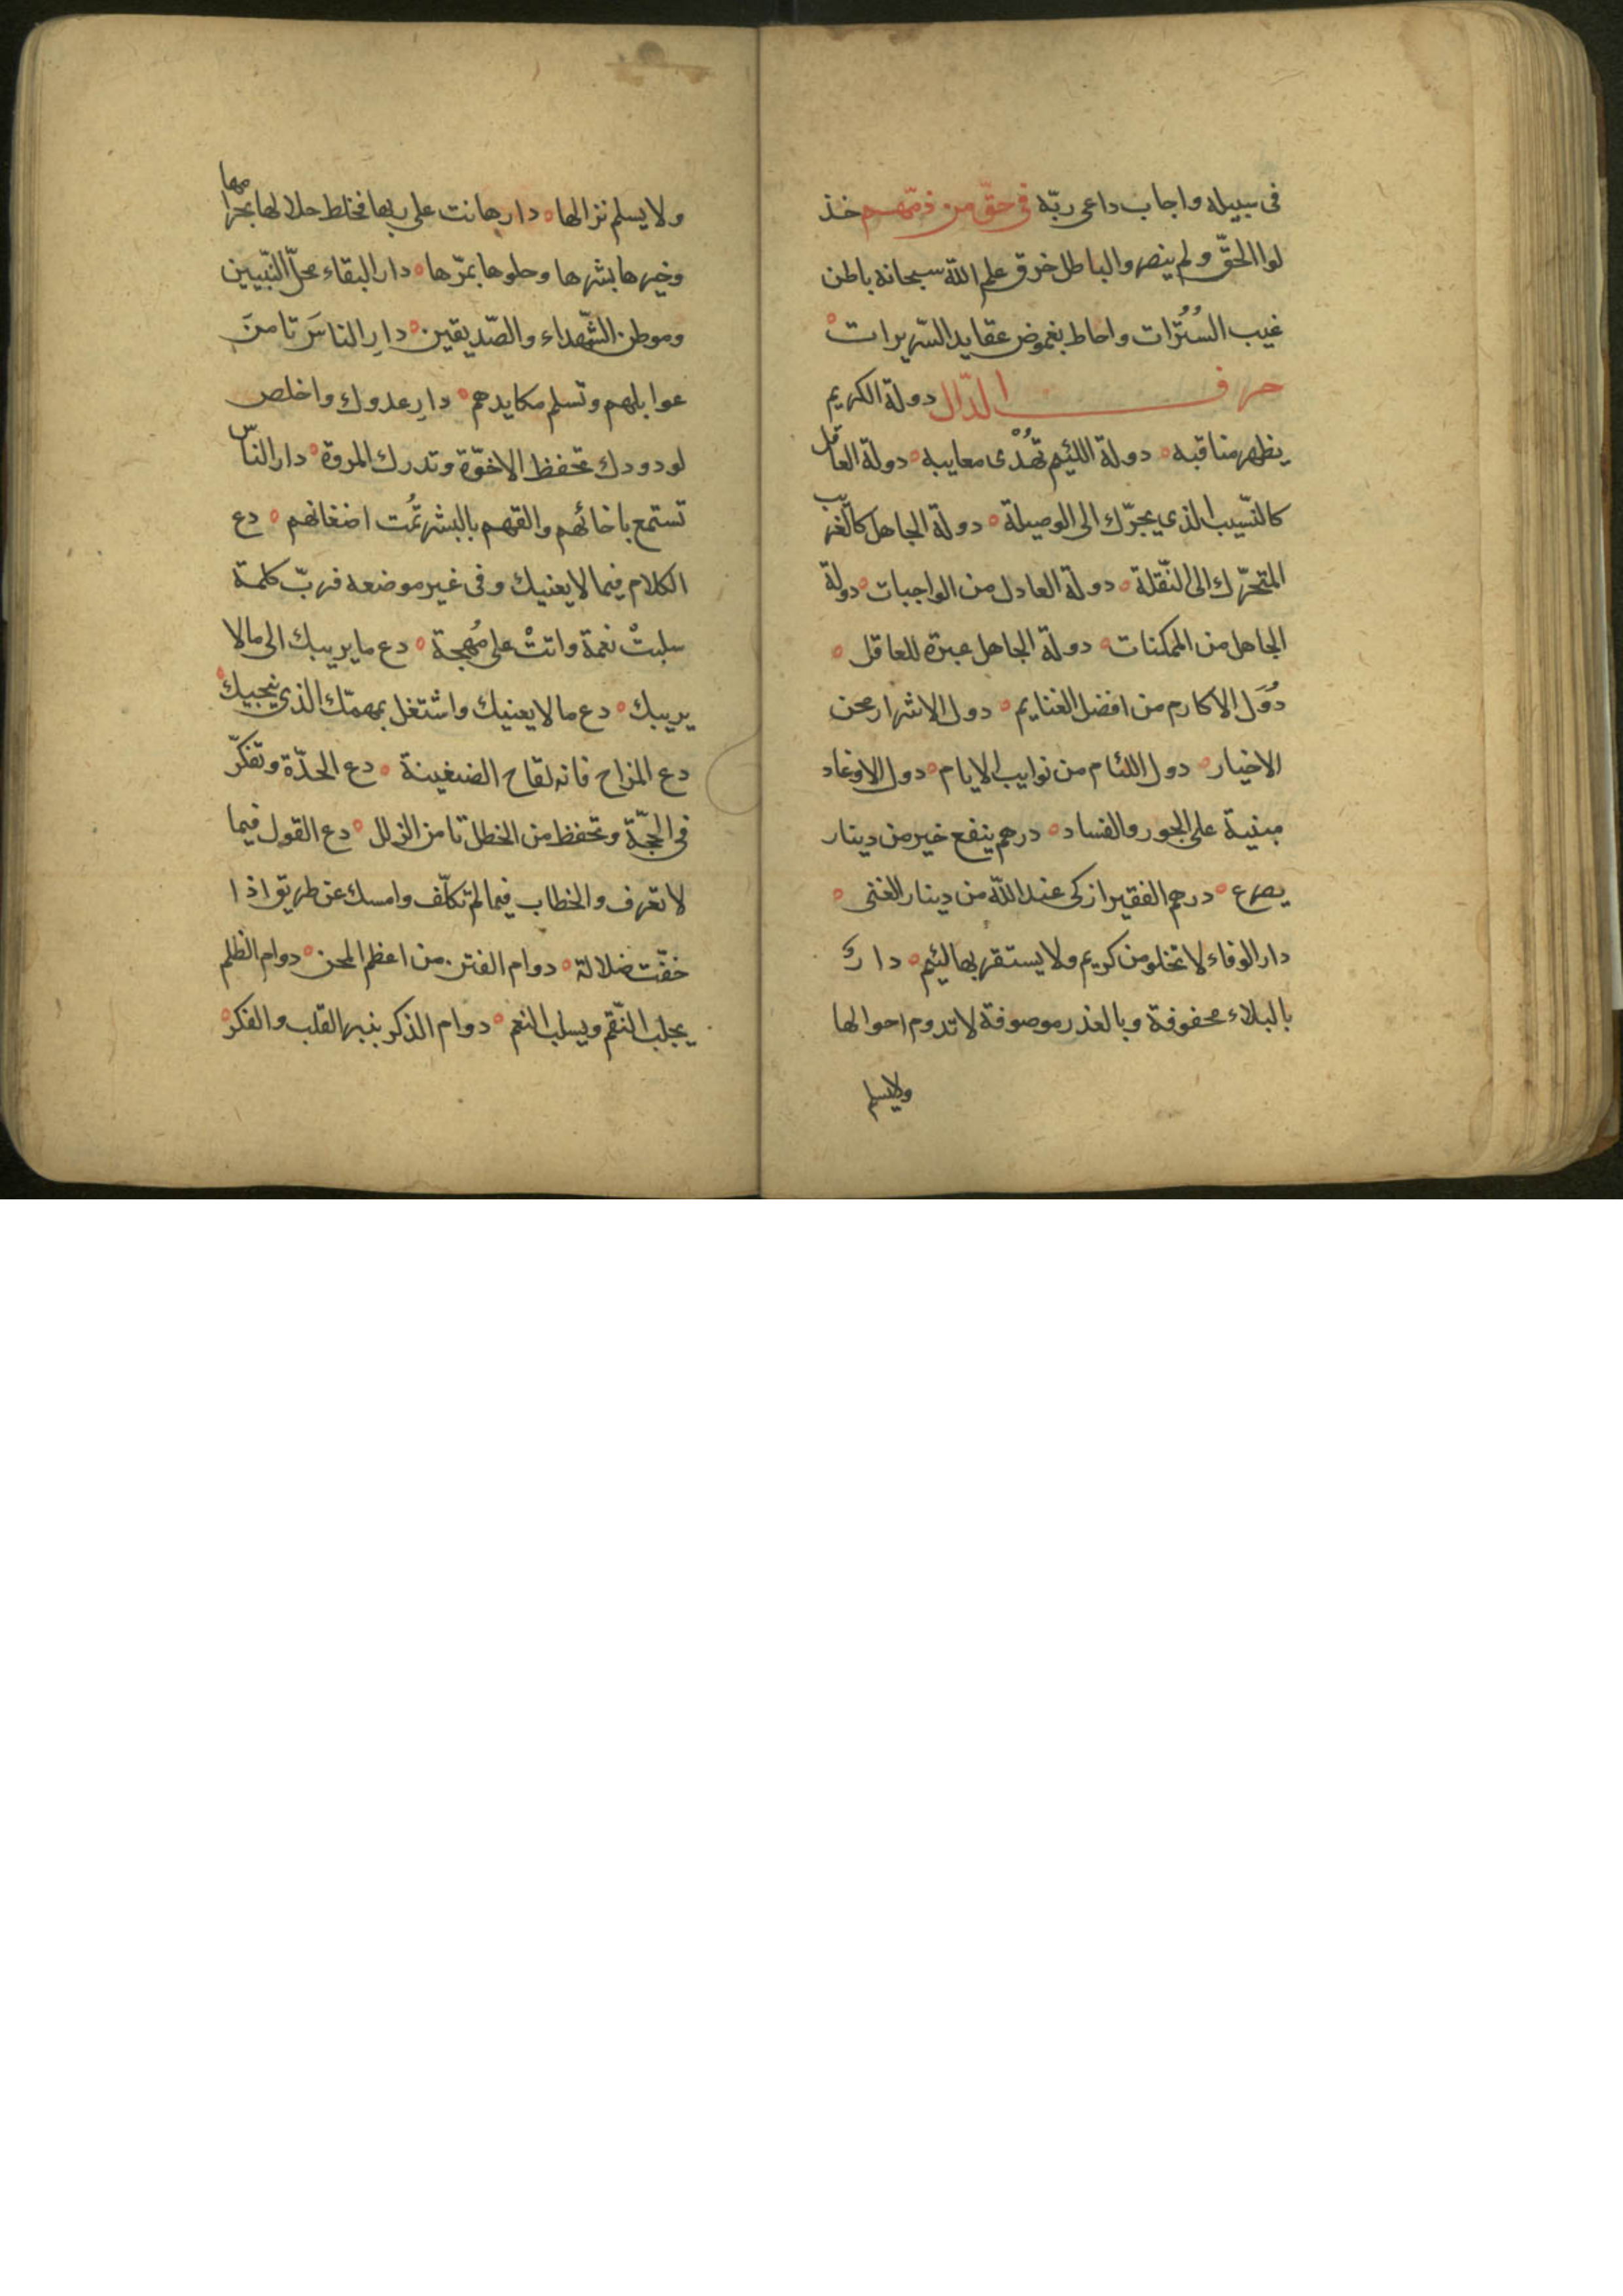 فى سبيله واجاب داعى ربّه فى حقّ من ذمّهم خذ
لوا الحقّ ولم ينصروا الباطل خرق علم الله سبحانه باطن
غيب السُتُرات واحاط بغموض عقايد السّريرات
حرف الدّال دولة الكريم
يظهر مناقبه دولة اللئيم تهدى معايبه دولة العاقل
كالنّسيب الذى يجرّك الى الوصيلة دولة الجاهل كالغريب
المتحرّك الى النّقلة دولة العادل من الواجبات دولة
الجاهل من الممكنات دولة الجاهل عبرة للعاقل
دُوَل الاكارم من افضل الغنايم دول الاشرار محن
الاخيار دول اللئام من نوايب الايام دول الاوغاد
مبنية على الجور والفساد درهم ينفع خير من دينار
يصرع درهم الفقير ازكى عند الله من دينار الغنى
دار الوفاء لا تخلو من كريم ولا يستقر بها لئيم دار
بالبلاء محفوفة وبالغدر موصوفة لا تدوم احوالها
ولا يسلم
ولا يسلم نزالها دار هانت على ربها فخلط حلالها بحرامها
وخيرها بشرها وحلوها بمرّها دار البقاء محلّ النّبيين
وموطن الشّهداء والصّديقين دارِ الناسَ تامنَ
عوايلهم وتسلم مكايدهم دارِ عدوك واخلص
لودودك تحفظ الاخوّة وتدرك المروة دار الناس
تستمع باخائهم والقهم بالبشر تُمت اضغانهم دع
الكلام فيما لا يعنيك وفى غير موضعه فربّ كلمة
سلبتْ نعمة واتتْ على مُهجة دع ما يريبك الى ما لا
يريبك دع ما لا يعنيك واشتغل بمهمّك الذى ينجيك
دع المزاح فانه لقاح الضغينة دع الحدّة وتفكّر
فى الحجّة وتحفظ من الخطل تامن الزلل دع القول فيما
لا تعرف والخطاب فيما لم تكلّف وامسك عن طريق اذا
خفت ضلالة دوام الفتن من اعظم المحن دوام الظلم
يجلب النّقم ويسلب النعم دوام الذكر ينير القلب والفكر